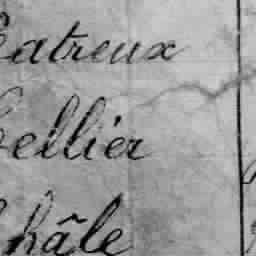 Catreux
Cellier
Châle